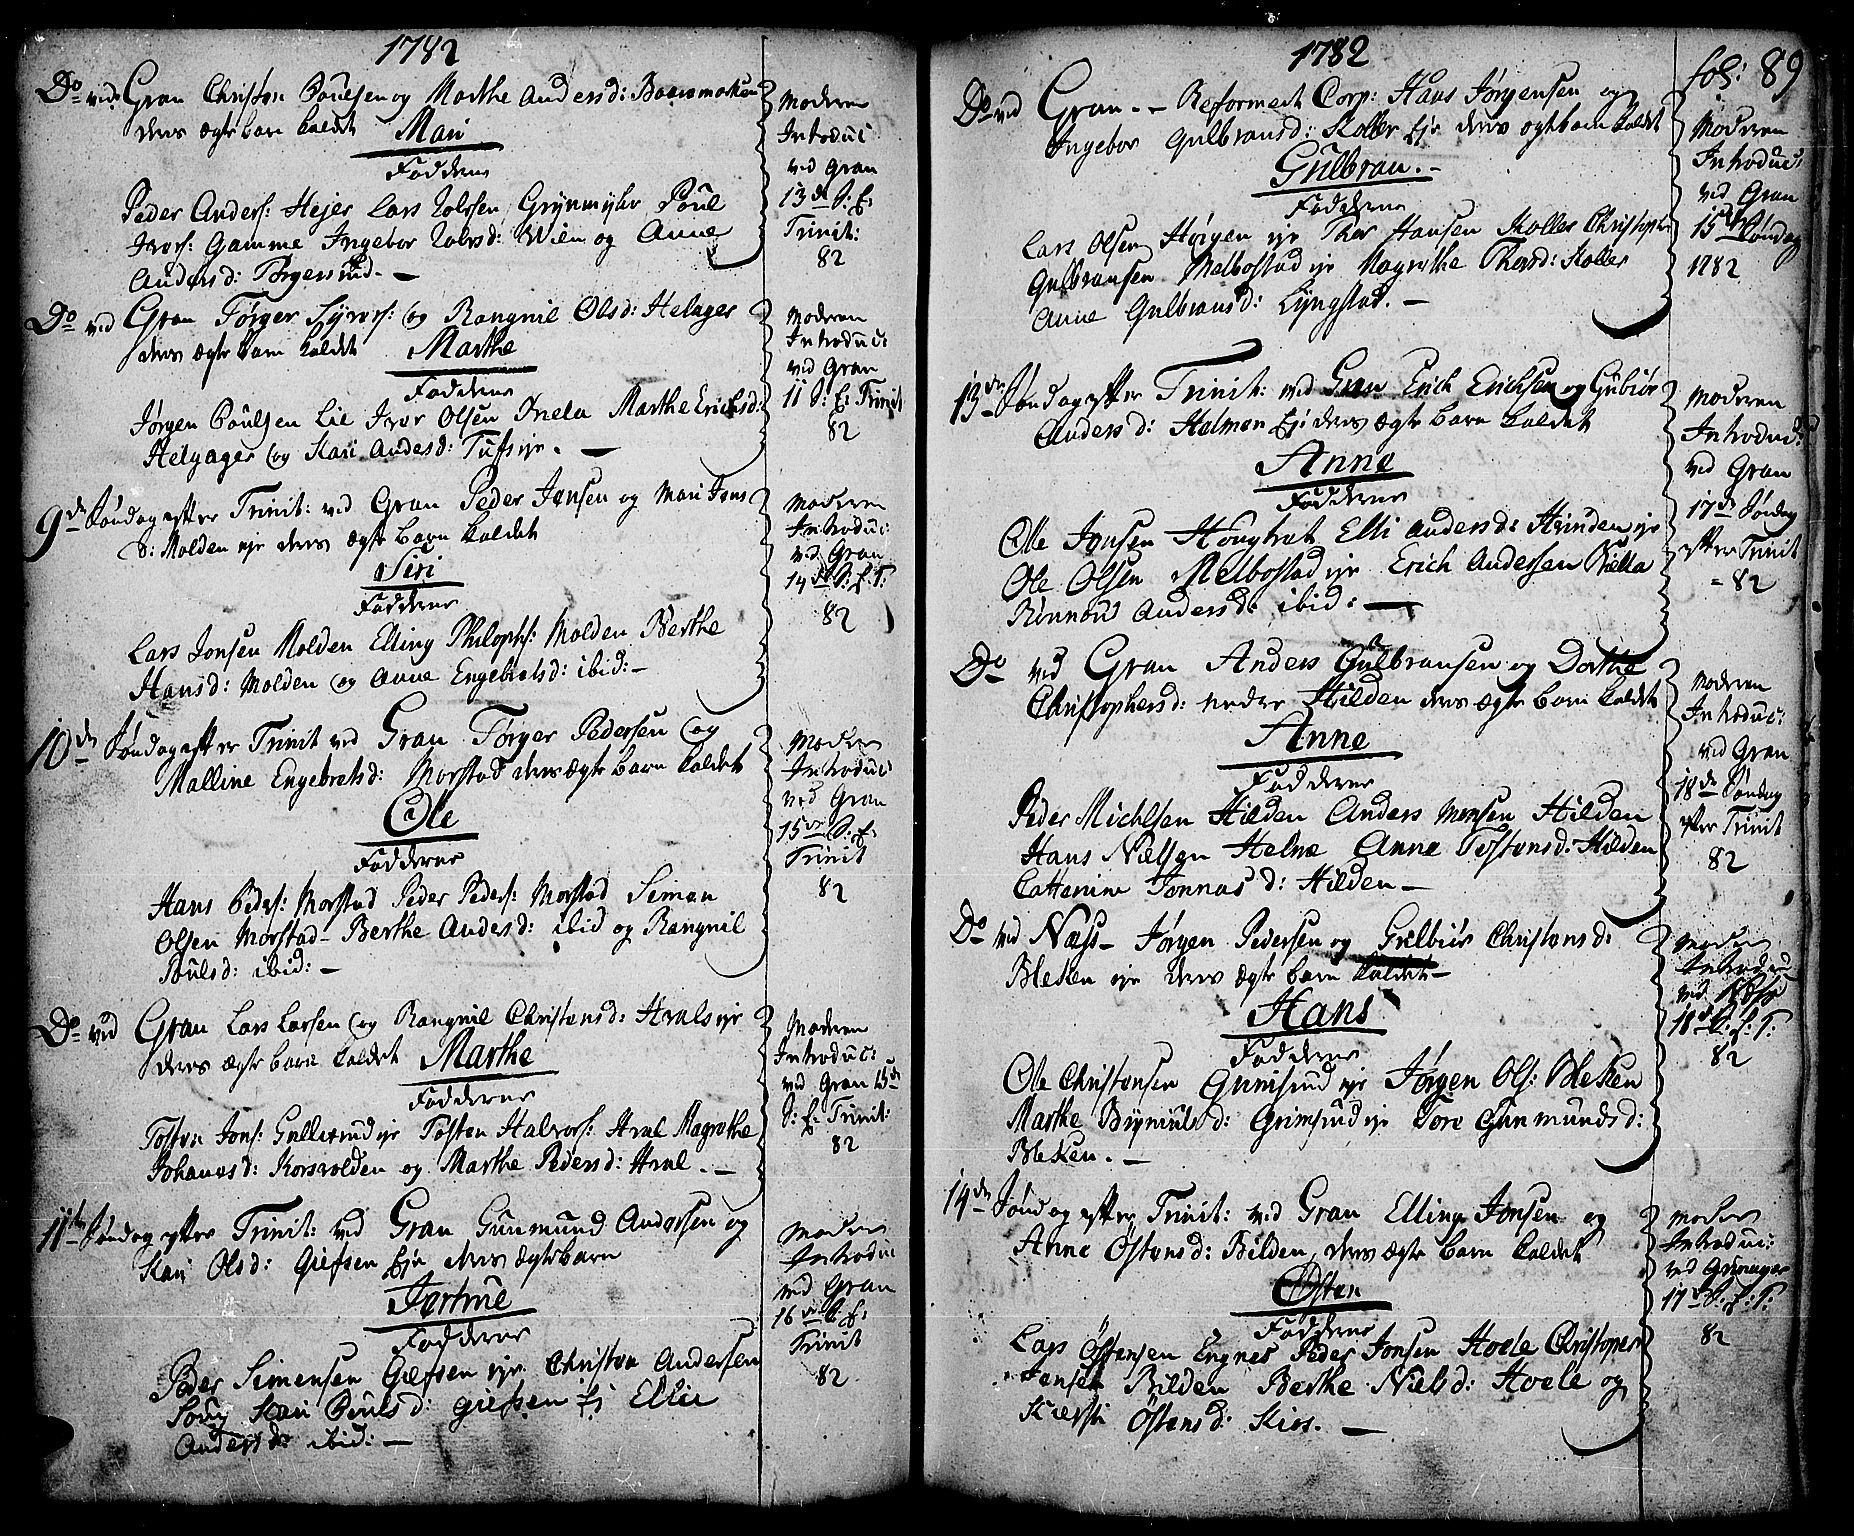 1782
Do ved Gran Christen Poulsen og Marthe Andersd:
deres ægte barn kaldet Mari
Fadderne
Peder Anders: Hejer Lars Grynmyhr Poul
Iver: Gamme Ingebor Wien og Anne
Andersd: Torgersrud. —
Moderen
Introduc:
ved Gran
13de S: E:
Trinit:
82
Do ved Gran Tørger Syvers: og Rangnil Olsd: Helager
deres ægte barn kaldet Marthe
Fadderne
Jørgen Poulsen Lie Iver Olsen Marthe Erichsd:
Helgager og Kari Andersd: Tufseje. —
Moderen
Introduc:
ved Gran
11 S: E: Trinit
82
9de Søndag efter Trinit: ved Gran Peder Jonsen og Mari Jons
d: Molden eje deres ægte barn kaldet
Siri
Fadderne
Lars Jonsen Molden Elling Philophs: Molden Berthe
Hansd: Molden og Anne Engebretsd: ibid: —
Moderen
Introduc:
ved Gran
14de S: E: T:
82
10de Søndag efter Trinit ved Gran Tørger Pedersen og
Malline Engebretsd: Morstad deres ægte barn kaldet
Ole
Fadderne
Hans Peders: Morstad Peder Peders: Morstad Simen
Olsen Morstad Berthe Andersd: ibid og Rangnil
Poulsd: ibid: —
Moderen
Introduc:
ved Gran
15de S: E:
Trinit
82
Do ved Gran Lars Larsen og Rangnil Christensd: Hvalseje
deres ægte barn kaldet Marthe
Fadderne
Tosten Jons: Gullerud eje Tosten Halvors: Hval Magrethe
Johansd: Korsvolden og Marthe Pedersd: Hval. —
Moderen
Introduc:
ved Gran 15de
S: E: Trinit:
82
11te Søndag efter Trinit: ved Gran Gunmund Andersen og
Kari Olsd: Giefsen Eje deres ægtebarn
Jortrue
Fadderne
Peder Simensen Giefsen eje Christen Andersen
Kari Poulsd: Giefsen Ej Ellie
Andersd: ibid: —
Moderen
Introduc
ved Gran
16de S: E:
Trinit
82
1782
fol: 89
Do ved Gran — Reformert Corp: Hans Jørgensen og
Ingebor Gulbransd: Koller Eje deres ægtebarn kaldet
Gulbran. —
Fadderne
Lars Olsen Horgen eje Thor Hansen Koller Christopher
Gulbransen Melbostad eje Magrethe Thorsd: Koller
Anne Gulbransd: Lyngstad. —
Moderen
Introduc:
ved Gran
15de Søndag
1782
13de Søndag efter Trinit: ved Gran Erich Erichsen og Gubiør
Andersd: Halmen Eje deres ægte barn kaldet
Anne
Fadderne
Ole Jonsen Elli Andersd: Hvinden eje
Ole Olsen Melbostad eje Erich Andersen
Rønnou Andersd: ibid: —
Moderen
Introduc:
ved Gran
17de Søndag
efter Trinit
- 82
Do ved Gran Anders Gulbransen og Dorthe
Christophersd: neder Hilden deres ægte barn kaldet
Anne
Fadderne
Peder Michlsen Hilden Anders Monsen Hilden
Hans Nielsen Helne Anne Tostensd: Hilden
Cattarine Jonnasd: Hilden —
Moderen
Introduc:
ved Gran
18de Søndag
efter Trinit
82
Do ved Næss — Jørgen Pedersen og Gulbiør Christensd:
Bleken eje deres ægte barn kaldet —
Hans
Fadderne
Ole Christensen Grimsrud eje Jørgen Ols: Bleken
Marthe Brynilsd: Grimsrud eje Tore Gunmundsd:
Bleken. —
Moder
Introduc
ved Næss
18de S: E: T:
82
14de Søndag efter Trinit: ved Gran Elling Jonsen og
Anne Østensd: Bilden deres ægte barn kaldet
Østen
Fadderne
Lars Østensen Engnes Peder Jonsen Hoele Christoper
Jensen Bilden Berthe Nielsd: Hoele og
Kiersti Østensd: Kios. —
Moderen
Introduc:
ved Grinager
17de S: E: T:
82